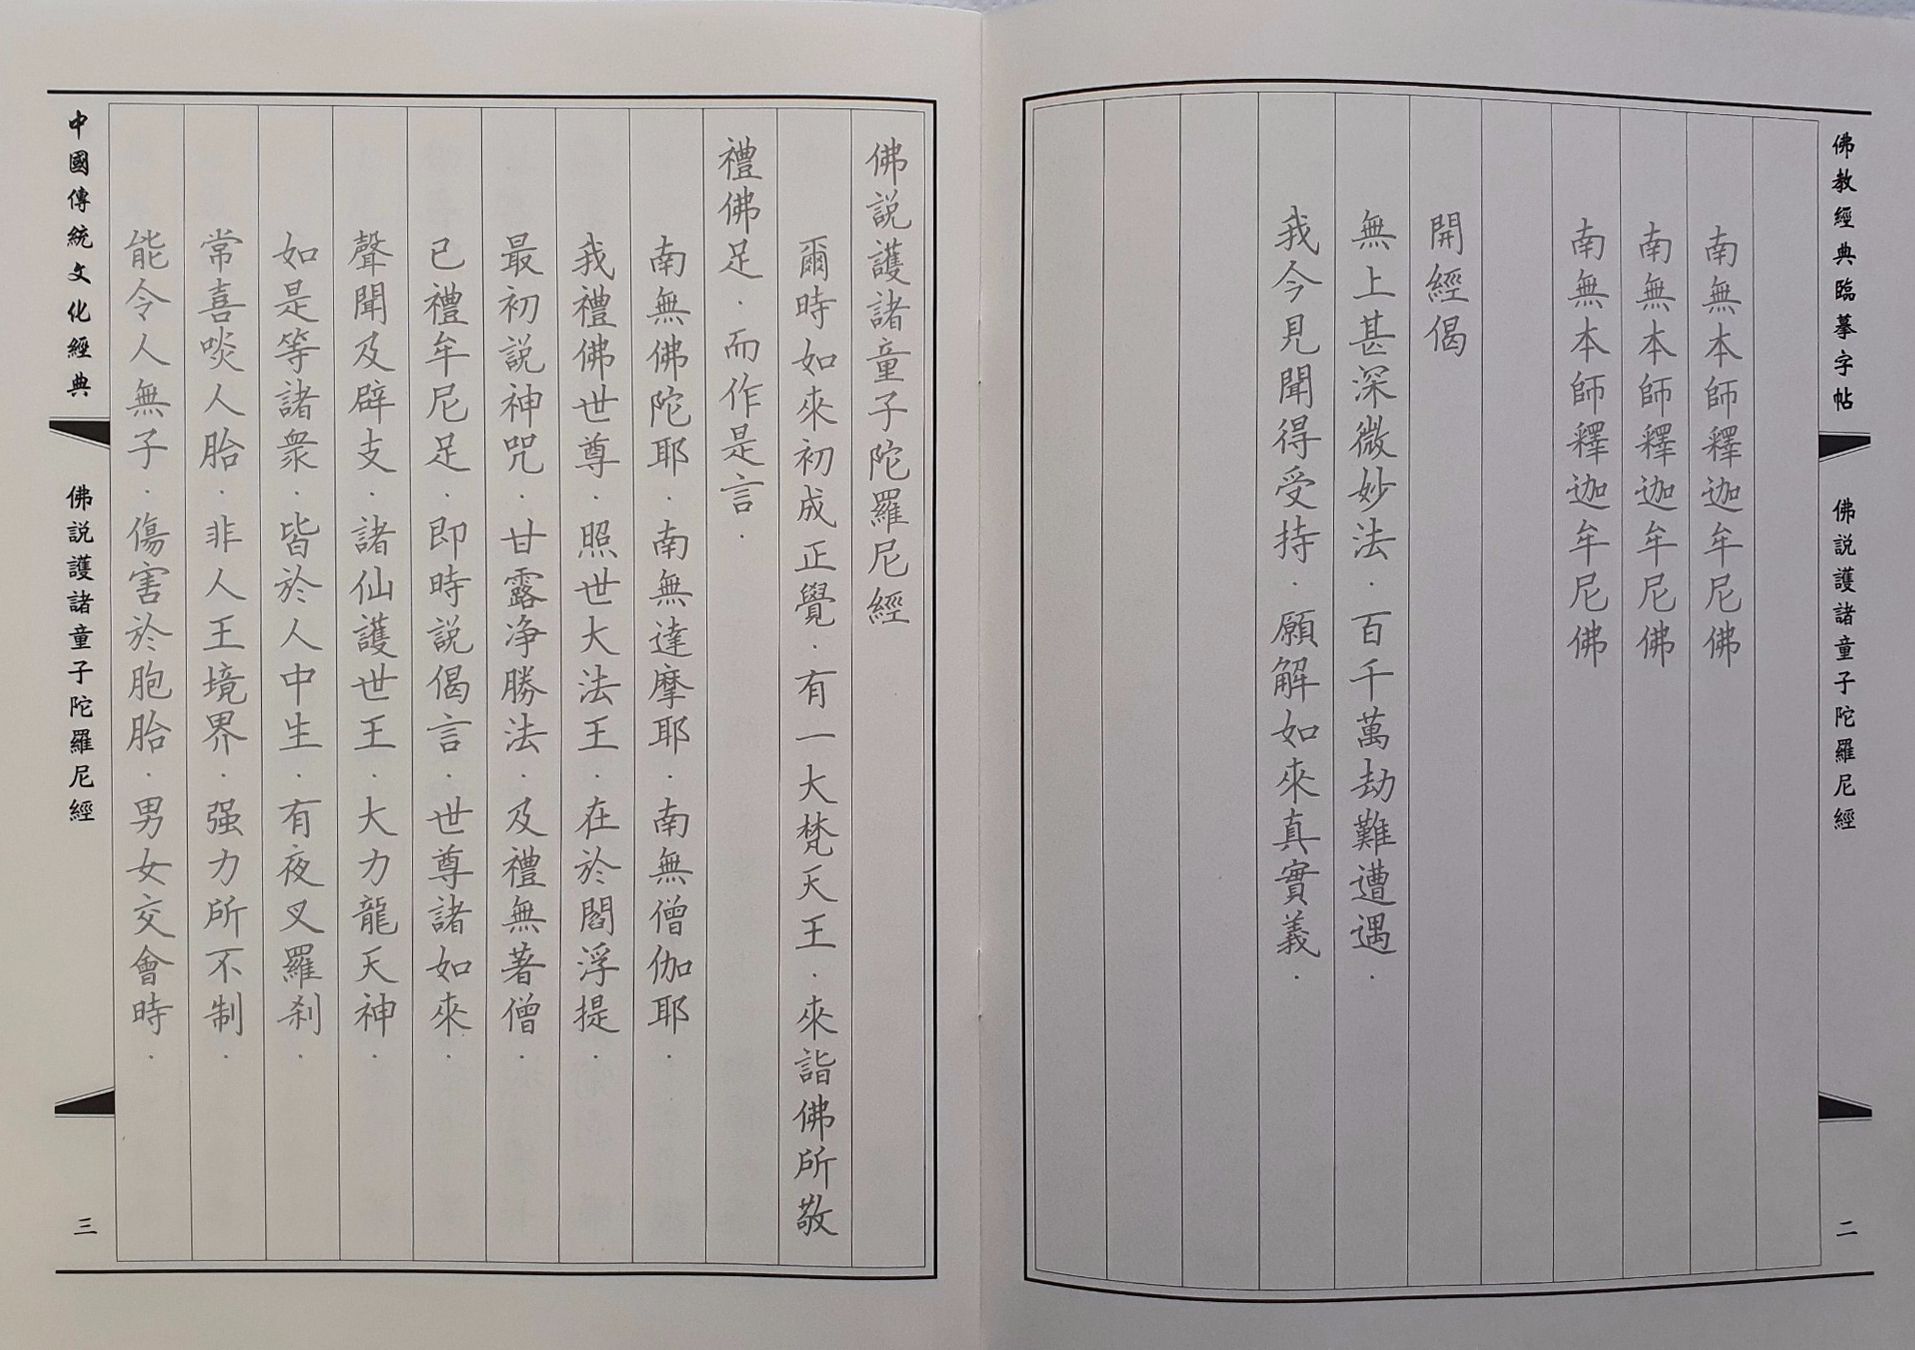 佛教經典臨摹字帖
佛説護諸童子陀羅尼經
二
南無本師釋迦牟尼佛
南無本師釋迦牟尼佛
南無本師釋迦牟尼佛
開經偈
無上甚深微妙法．百千萬劫難遭遇．
我今見聞得受持．願解如來真實義．
佛説護諸童子陀羅尼經
爾時如來初成正覺．有一大梵天王．來詣佛所敬
禮佛足．而作是言．
南無佛陀耶．南無達摩耶．南無僧伽耶．
我禮佛世尊．照世大法王．在於閻浮提．
最初説神咒．甘露净勝法．及禮無著僧．
已禮牟尼足．即時説偈言．世尊諸如來．
聲聞及辟支．諸仙護世王．大力龍天神．
如是等諸衆．皆於人中生．有夜叉羅刹．
常喜啖人胎．非人王境界．强力所不制．
能令人無子．傷害於胞胎．男女交會時．
中國傳統文化經典
佛説護諸童子陀羅尼經
三